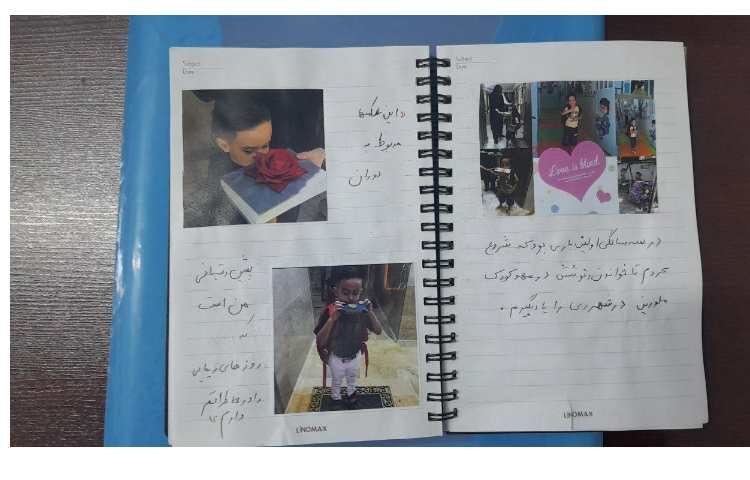 Subject:
Date:
این عکسها
مربوط به
دوران
پیش دبستانی
من است
که
روز های زیبایی
را در خاطراتم
دارم
LINOMAX
Subject:
Date:
Love is blind
در سه سالگی اولین باری بود که شروع
کردم تا خواندن و نوشتن در مهد کودک
در شهر ری را یاد بگیرم.
LINOMAX